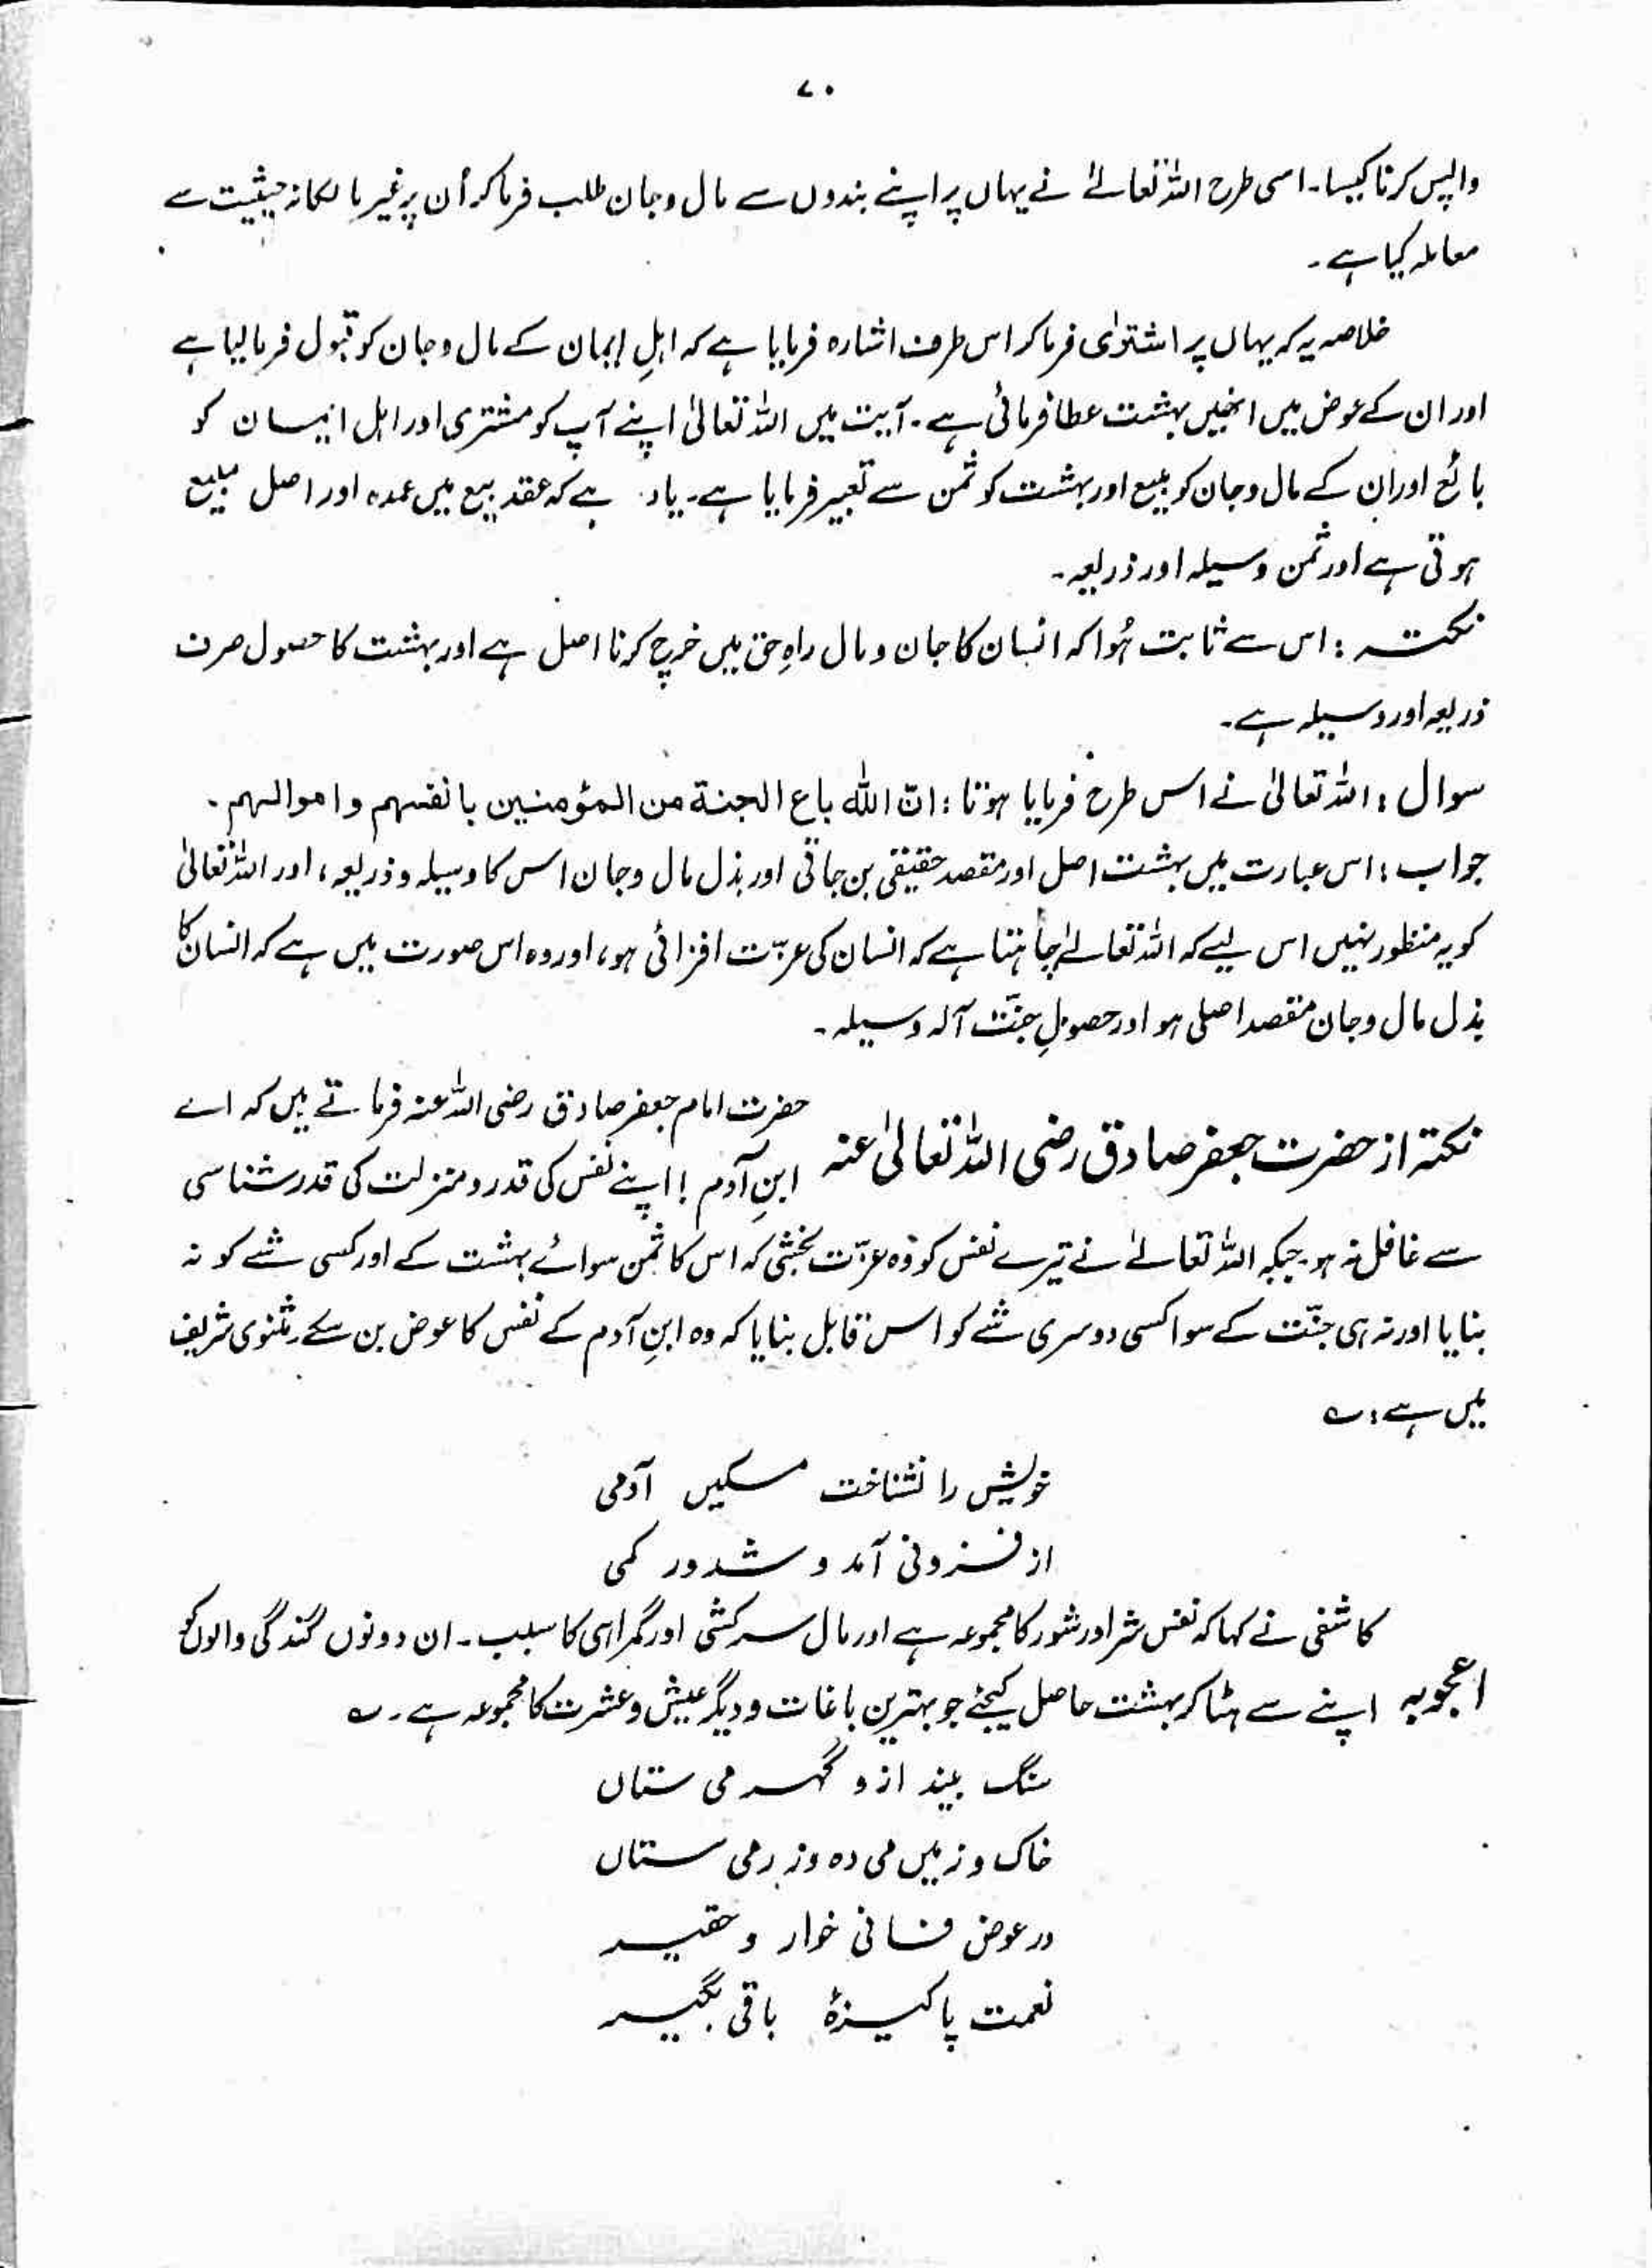 ۷۰
واپس کرنا کیسا۔ اسی طرح اللہ تعالےٰ نے یہاں پر اپنے بندوں سے مال و جان طلب فرما کر اُن پر غیر مالکانہ حیثیت سے
معاملہ کیا ہے۔
خلاصہ یہ کہ یہاں پر اشتریٰ فرما کر اس طرف اشارہ فرمایا ہے کہ اہلِ ایمان کے مال و جان کو قبول فرما لیا ہے
اور ان کے عوض میں انھیں بہشت عطا فرمائی ہے۔ آیت میں اللہ تعالیٰ اپنے آپ کو مشتری اور اہل ایمان کو
بائع اور ان کے مال و جان کو مبیع اور بہشت کو ثمن سے تعبیر فرمایا ہے۔ یاد ہے کہ عقد بیع میں عمدہ اور اصل مبیع
ہوتی ہے اور ثمن وسیلہ اور ذریعہ۔
نکتہ : اس سے ثابت ہُوا کہ انسان کا جان و مال راہِ حق میں خرچ کرنا اصل ہے اور بہشت کا حصول صرف
ذریعہ اور وسیلہ ہے۔
سوال : اللہ تعالیٰ نے اس طرح فرمایا ہوتا : انّ اللہ باع الجنة من المؤمنین بانفسہم و اموالہم۔
جواب : اس عبارت میں بہشت اصل اور مقصد حقیقی بن جاتی اور بذل مال و جان اس کا وسیلہ و ذریعہ، اور اللہ تعالیٰ
کو یہ منظور نہیں اس لیے کہ اللہ تعالےٰ چاہتا ہے کہ انسان کی عزّت افزائی ہو، اور وہ اس صورت میں ہے کہ انسان کا
بذل مال و جان مقصد اصلی ہو اور حصولِ جنّت آلہ وسیلہ۔
نکتہ از حضرت جعفر صادق رضی اللہ تعالیٰ عنہ
حضرت امام جعفر صادق رضی اللہ عنہ فرماتے ہیں کہ اے
ابنِ آدم ! اپنے نفس کی قدر و منزلت کی قدر شناسی
سے غافل نہ ہو جبکہ اللہ تعالےٰ نے تیرے نفس کو وہ عزّت بخشی کہ اس کا ثمن سوائے بہشت کے اور کسی شے کو نہ
بنایا اور نہ ہی جنّت کے سوا کسی دوسری شے کو اس قابل بنایا کہ وہ ابنِ آدم کے نفس کا عوض بن سکے۔ مثنوی شریف
میں ہے : ؎
خویش را نشناخت مسکیں آدمی
از فزونی آمد و شد در کمی
اعجوبہ
کاشفی نے کہا کہ نفس شر اور شور کا مجموعہ ہے اور مال سرکشی اور گمراہی کا سبب۔ ان دونوں گندگی والوں کو
اپنے سے ہٹا کر بہشت حاصل کیجئے جو بہترین باغات و دیگر عیش و عشرت کا مجموعہ ہے۔ ؎
سنگ بیند ازو گہر می ستاں
خاک و زمیں می دہ و زر می ستاں
در عوض فانی خوار و حقیر
نعمت پاکیزۂ باقی بگیر